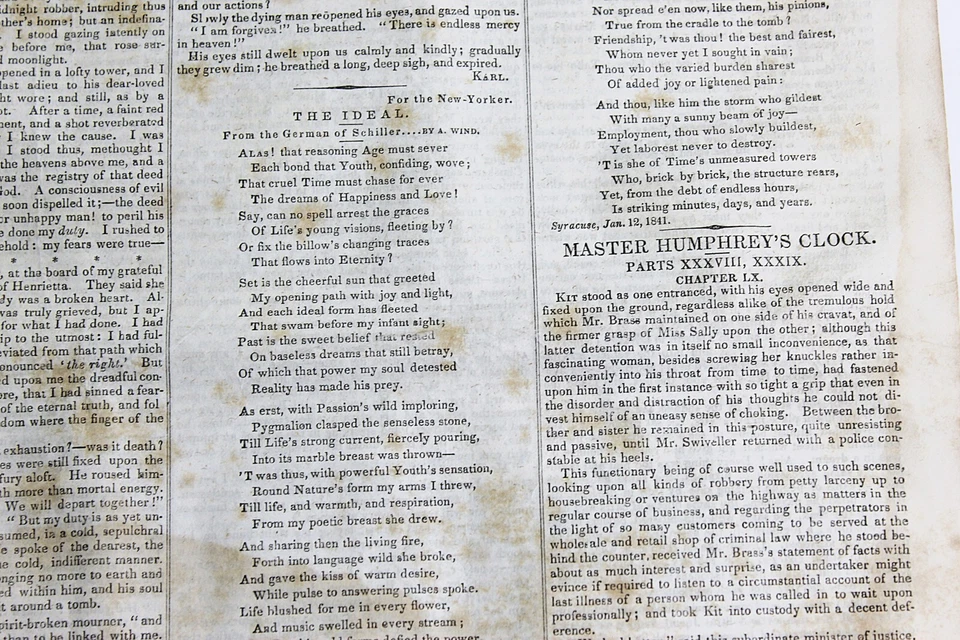 idnight robber, intruding thus
other's home; but an indefina-
I stood gazing intently on
e before me, that rose sur-
d moonlight.
opened in a lofty tower, and I
last adieu to his dear-loved
ht wore; and still, as by a
ot. After a time, a faint red
ment, and a shot reverberated
I knew the cause. I was
I stood thus, methought I
the heavens above me, and a
was the registry of that deed
God. A consciousness of evil
soon dispelled it;—the deed
or unhappy man! to peril his
e done my duty. I rushed to
ehold: my fears were true—
* * * *
, at the board of my grateful
of Henrietta. They said she
dy was a broken heart. Al-
was truly grieved, but I ap-
for what I had done. I had
ip to the utmost: I had ful-
eviated from that path which
onounced 'the right.' But
d upon me the dreadful con-
ore, that I had sinned a fear-
of the eternal truth, and fol-
dom where the finger of the
exhaustion?—was it death?
es were still fixed upon the
fury aloft. He roused him-
th more than mortal energy.
We will depart together!"
"But my duty is as yet un-
sumed, in a cold, sepulchral
e spoke of the dearest, the
e cold, indifferent manner.
nging no more to earth and
ed within him, and his soul
t around a tomb.
pirit-broken mourner, "and
than to be linked with me.
and our actions?
Sl wly the dying man reopened his eyes, and gazed upon us.
"I am forgiven!" he breathed. "There is endless mercy
in heaven!"
His eyes still dwelt upon us calmly and kindly; gradually
they grew dim; he breathed a long, deep sigh, and expired.
KARL.
For the New-Yorker.
THE IDEAL.
From the German of Schiller....BY A. WIND.
ALAS! that reasoning Age must sever
Each bond that Youth, confiding, wove;
That cruel Time must chase for ever
The dreams of Happiness and Love!
Say, can no spell arrest the graces
Of Life's young visions, fleeting by?
Or fix the billow's changing traces
That flows into Eternity?
Set is the cheerful sun that greeted
My opening path with joy and light,
And each ideal form has fleeted
That swam before my infant sight;
Past is the sweet belief that rested
On baseless dreams that still betray,
Of which that power my soul detested
Reality has made his prey.
As erst, with Passion's wild imploring,
Pygmalion clasped the senseless stone,
Till Life's strong current, fiercely pouring,
Into its marble breast was thrown—
'T was thus, with powerful Youth's sensation,
Round Nature's form my arms I threw,
Till life, and warmth, and respiration,
From my poetic breast she drew.
And sharing then the living fire,
Forth into language wild she broke,
And gave the kiss of warm desire,
While pulse to answering pulses spoke.
Life blushed for me in every flower,
And music swelled in every stream;
defied the power
Nor spread e'en now, like them, his pinions,
True from the cradle to the tomb?
Friendship, 't was thou! the best and fairest,
Whom never yet I sought in vain;
Thou who the varied burden sharest
Of added joy or lightened pain:
And thou, like him the storm who gildest
With many a sunny beam of joy—
Employment, thou who slowly buildest,
Yet laborest never to destroy.
'T is she of Time's unmeasured towers
Who, brick by brick, the structure rears,
Yet, from the debt of endless hours,
Is striking minutes, days, and years.
Syracuse, Jan. 12, 1841.
MASTER HUMPHREY'S CLOCK.
PARTS XXXVIII, XXXIX.
CHAPTER LX.
KIT stood as one entranced, with his eyes opened wide and
fixed upon the ground, regardless alike of the tremulous hold
which Mr. Brass maintained on one side of his cravat, and of
the firmer grasp of Miss Sally upon the other; although this
latter detention was in itself no small inconvenience, as that
fascinating woman, besides screwing her knuckles rather in-
conveniently into his throat from time to time, had fastened
upon him in the first instance with so tight a grip that even in
the disorder and distraction of his thoughts he could not di-
vest himself of an uneasy sense of choking. Between the bro-
ther and sister he remained in this posture, quite unresisting
and passive, until Mr. Swiveller returned with a police con-
stable at his heels.
This functionary being of course well used to such scenes,
looking upon all kinds of robbery from petty larceny up to
housebreaking or ventures on the highway as matters in the
regular course of business, and regarding the perpetrators in
the light of so many customers coming to be served at the
wholesale and retail shop of criminal law where he stood be-
hind the counter, received Mr. Brass's statement of facts with
about as much interest and surprise, as an undertaker might
evince if required to listen to a circumstantial account of the
last illness of a person whom he was called in to wait upon
professionally; and took Kit into custody with a decent def-
erence.
said this subordinate minister of justice,